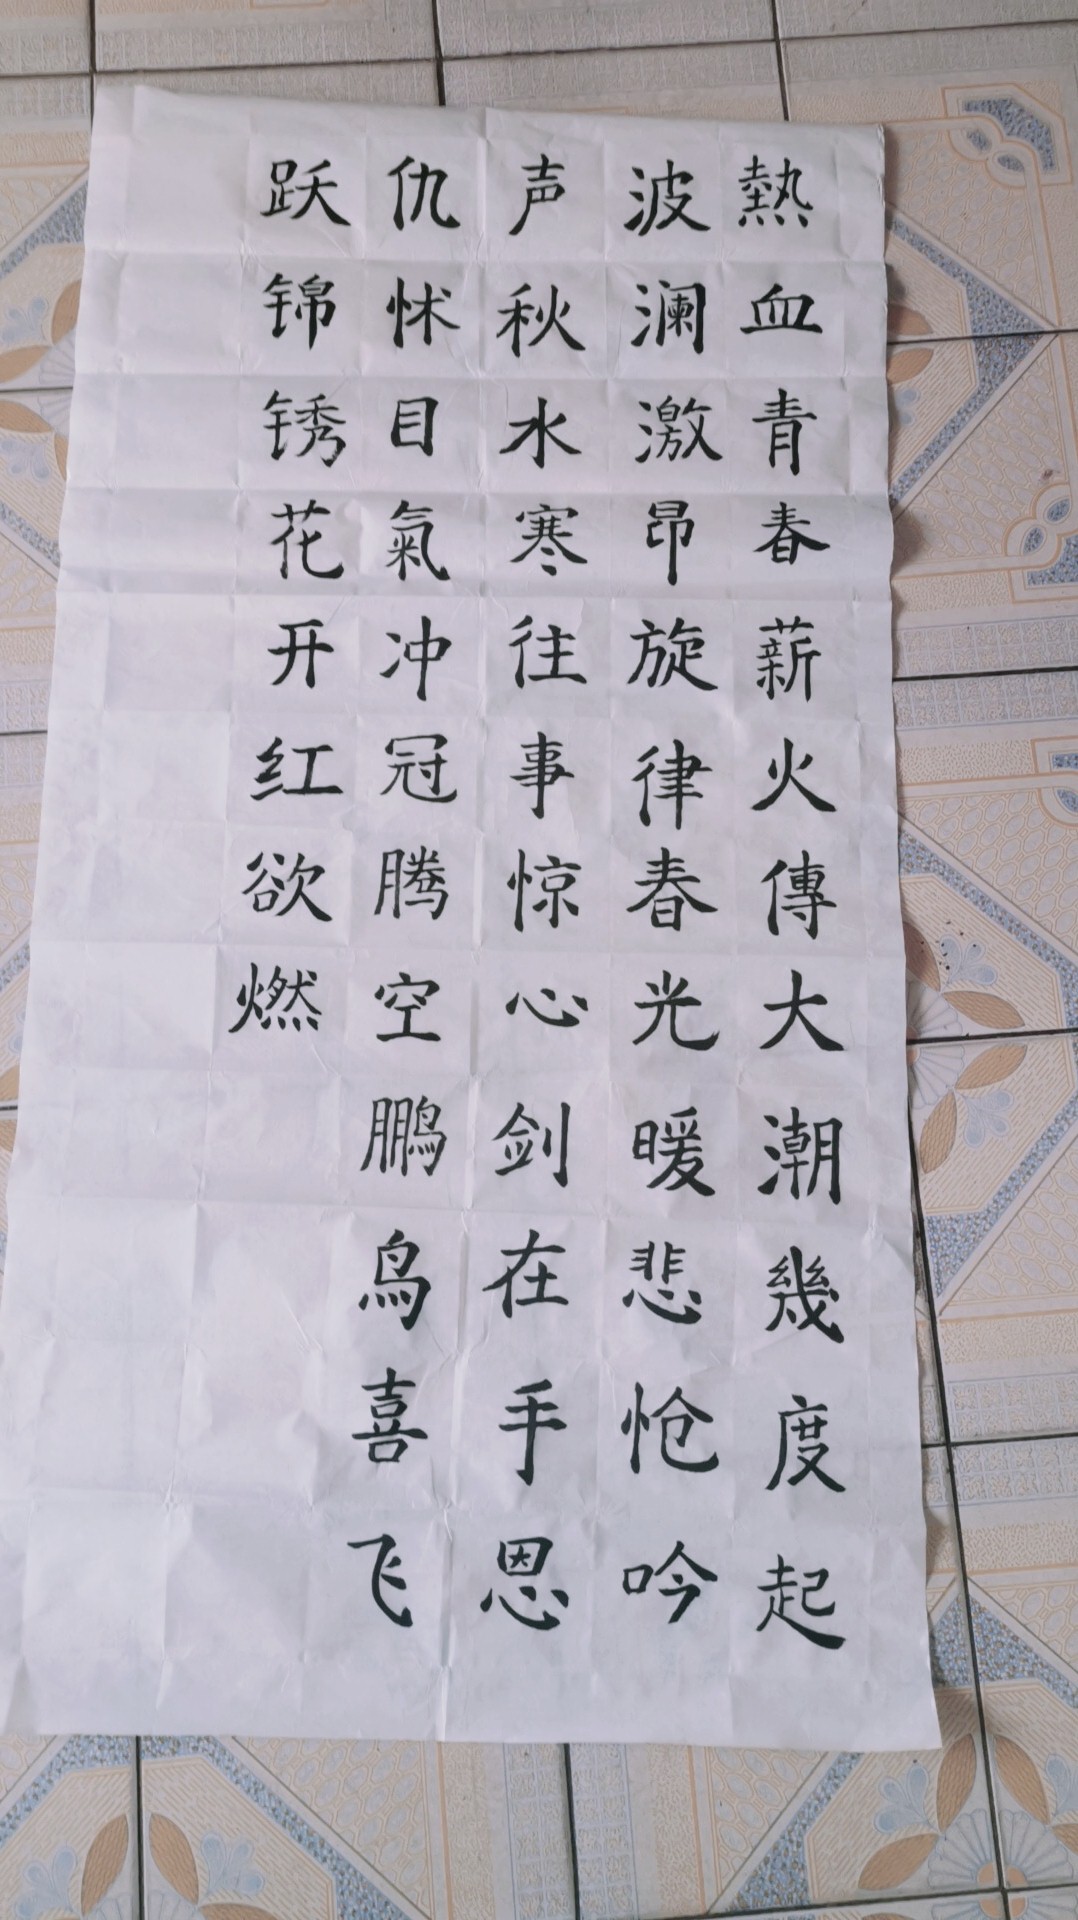 熱血青春薪火傳大潮幾度起
波澜激昂旋律春光暖悲怆吟
声秋水寒往事惊心剑在手恩
仇怵目氣冲冠腾空鹏鸟喜飞
跃锦锈花开红欲燃